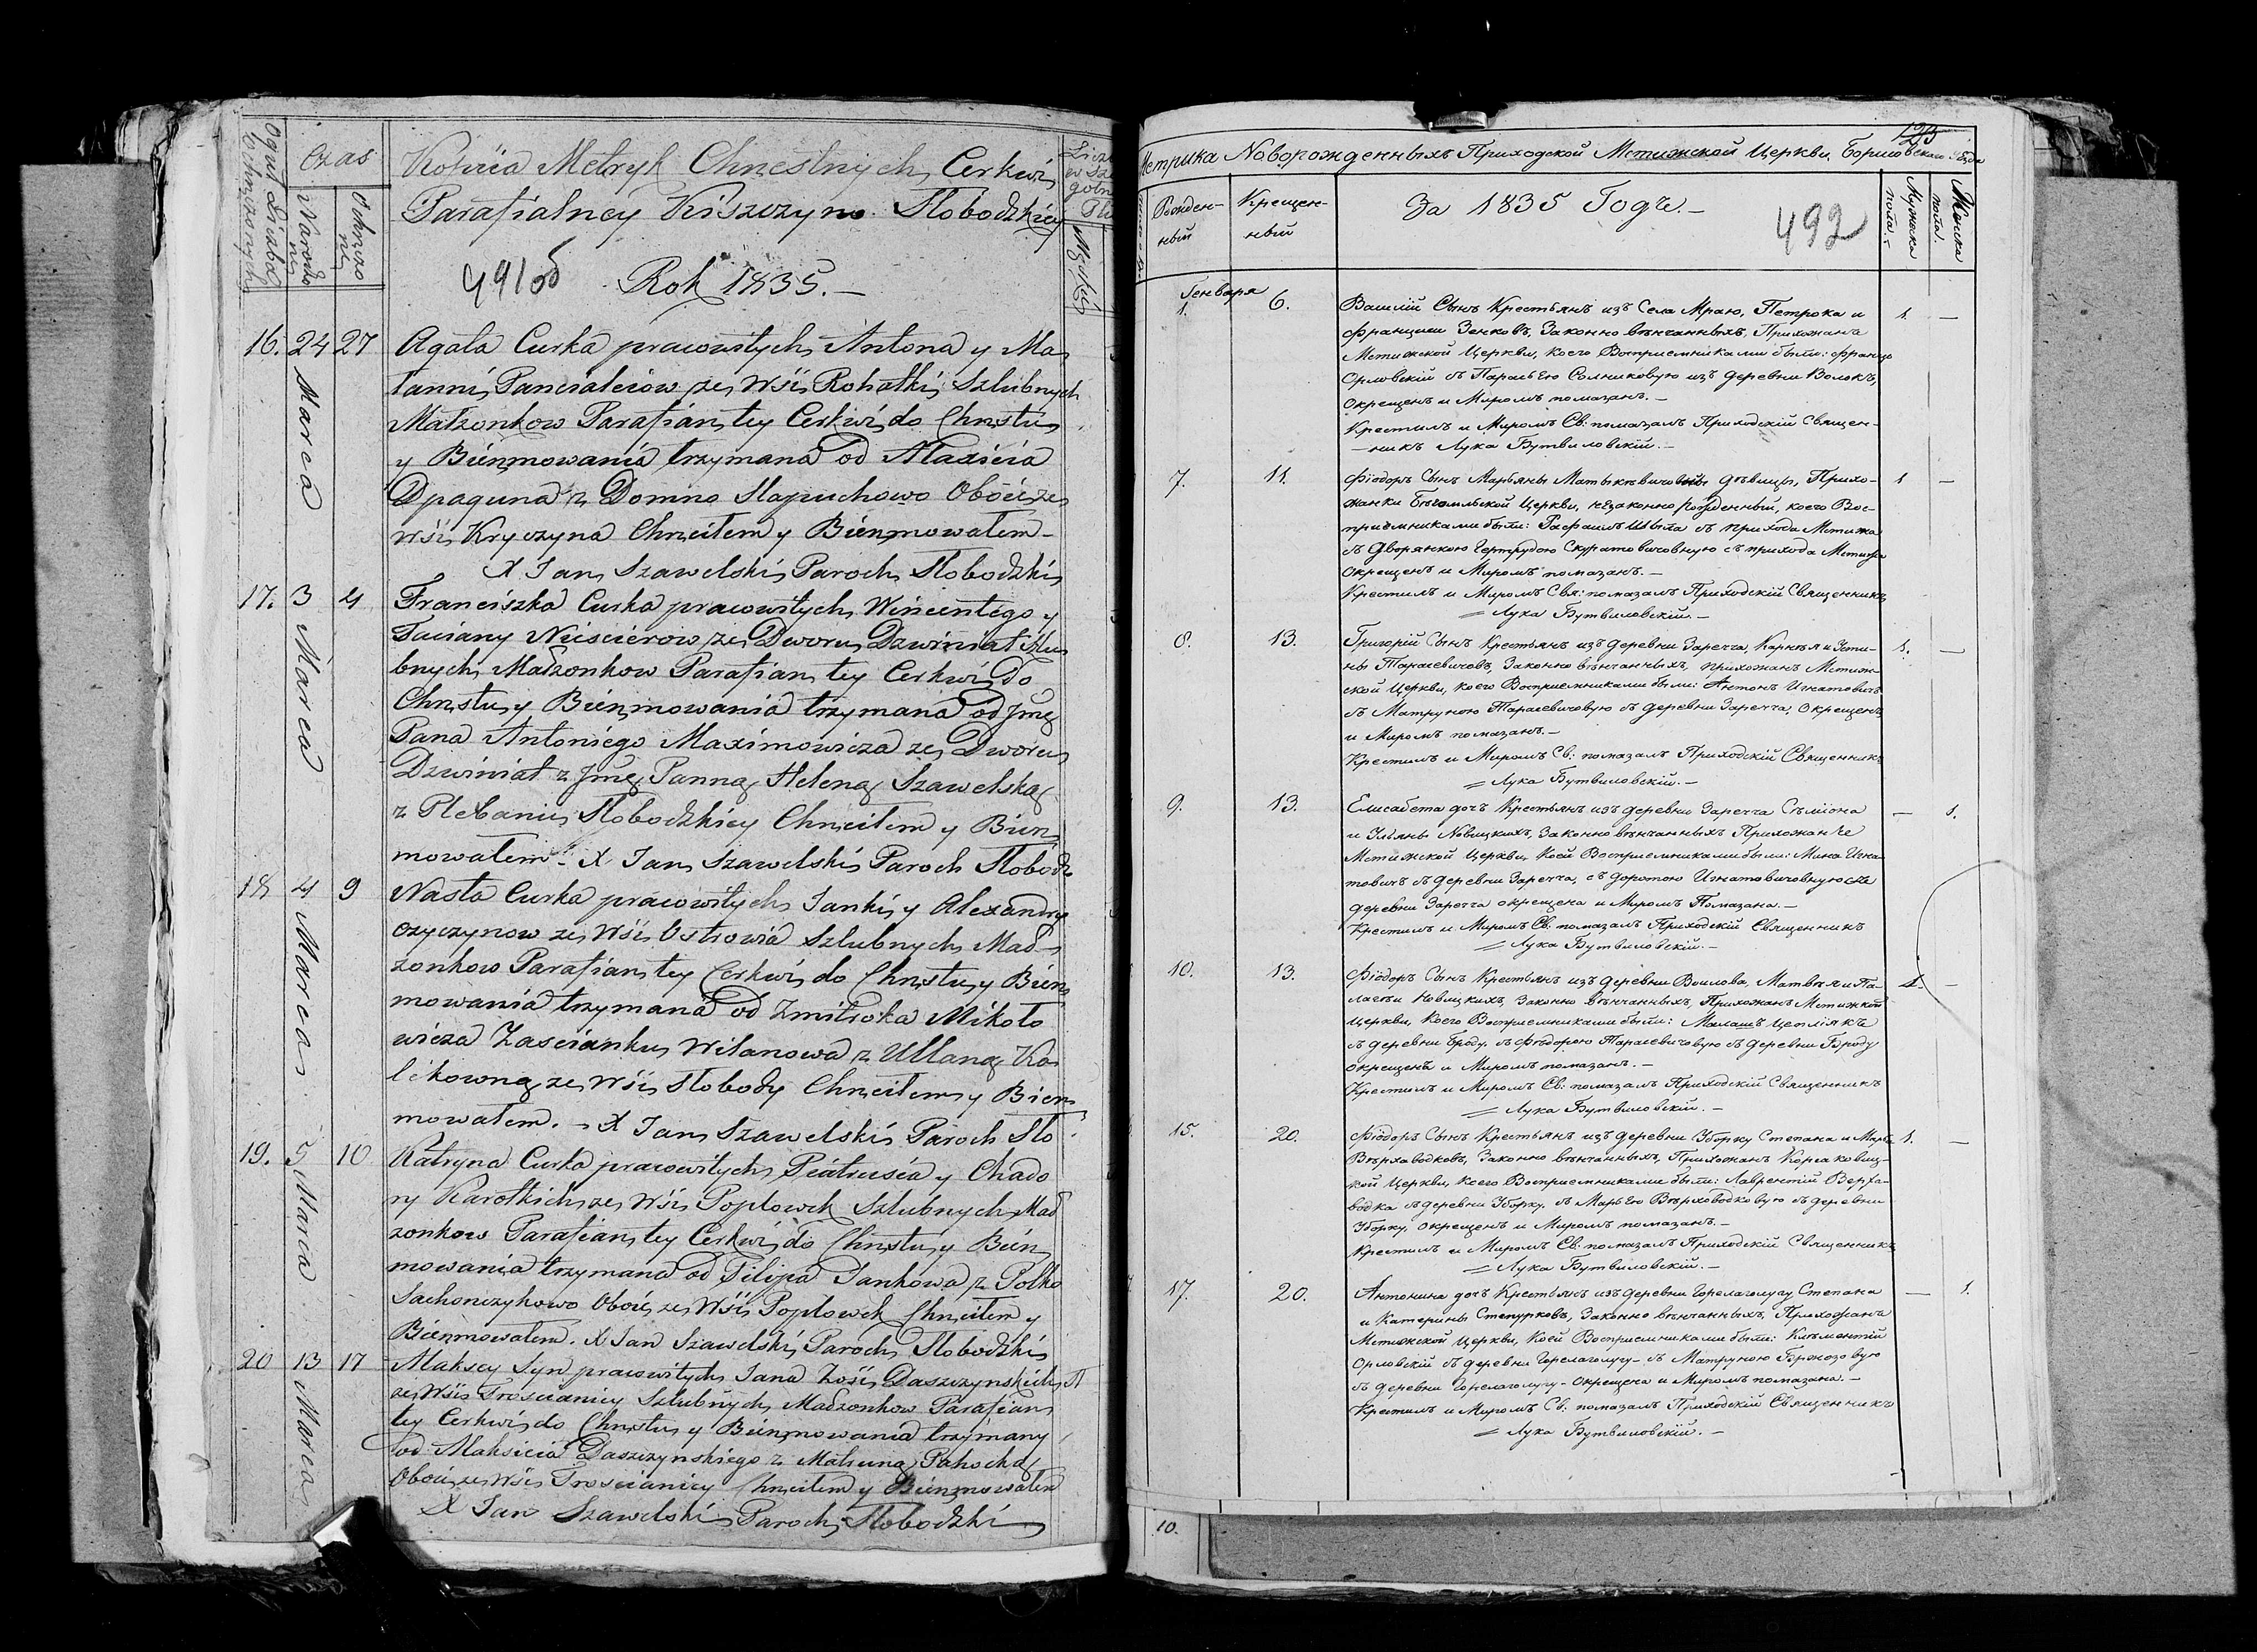 Czas
Kopiia Metryk Chrzestnych Cerkwi
Parafialney Kiszczyno Słobodzkiey
491 об
Rok 1835.—
16. 24 27 Marca
Agata Curka pracowitych Antona y Ma
ze Wsi Rohatki Szlubnych
Małzonkow Parafian tey Cerkwi do Chrztu
y Bierzmowania trzymana od Maxicia
z Domno Słapuchowo Oboie ze
wsi Kryczyna Chrzciłem y Bierzmowałem –
X Jan Szawelski Paroch Słobodzki
17. 3 4 Marca
Franciszka Curka pracowitych Wincentego y
Taciany ze Dworu Dzwiniat Szlu
bnych Małzonkow Parafian tey Cerkwi do
Chrztu y Bierzmowania trzymana od Jmę
Pana Antoniego Maximowicza ze Dworu
Dzwiniat z Jmę Panną Heleną Szawelską
z Plebanii Słobodzkiey Chrzciłem y Bierz
mowałem – X Jan Szawelski Paroch Słobodz
18 4 9 Marca
Nasta Curka pracowitych Janki y Alexandry
Czyczynow ze Wsi Ostrowia Szlubnych Mał
zonkow Parafian tey Cerkwi do Chrztu y Bierz
mowania trzymana od Zmitroka Mikoło
wicza Zascianku Wilanowa z Ullaną Ko
likowną ze Wsi Słobody Chrzciłem y Bierz
mowałem. – X Jan Szawelski Paroch Sło
19. 5 10 Marca
Katryna Curka pracowitych Piatrusia y Chado
ry Karotkich ze Wsi Popłowek Szlubnych Mał
zonkow Parafian tey Cerkwi do Chrztu y Bierz
mowania trzymana od Filipa Jankowa z Połko
Sachonczykowo Oboie ze Wsi Popłowek Chrzciłem y
Bierzmowałem. X Jan Szawelski Paroch Słobodzki
20 13 17 Marca
Maksey Syn pracowitych Jana Zosi Daszczynskich
ze Wsi Troscianicy Szlubnych Małzonkow Parafian
tey Cerkwi do Chrztu y Bierzmowania trzymany
od Maksicia Daszczynskiego z Matruną Pahocką
Oboie ze Wsi Troscianicy Chrzciłem y Bierzmowałem
X Jan Szawelski Paroch Słobodzki
Метрика Новорожденныхъ Приходской Мстижской Церкви, Борисовского Уѣзда
Рожден-
ный
Крещен-
ный
За 1835 Годъ.—
492
Мужеска
пола.
Женска
пола.
Генваря
1. 6.
Василій Сынъ Крестьянъ изъ Села Мраю, Петрока и 1. —
Франциси Зенковъ, Законно вѣнчанныхъ, Прихожанъ
Мстижской Церкви, коего Восприемниками были: Франц
Орловскій съ Парасьею Солниковую изъ деревни Волокъ,
Окрещенъ и Миромъ помазанъ. —
Крестилъ и Миромъ Св: помазалъ Приходскій Священ-
никъ Лука Бутвиловскій. —
7. 11.
Фіодоръ Сынъ Марьяны дѣвицы, Прихо- 1 —
жанки Бѣгомльской Церкви, незаконно рожденный, коего Вос-
приемниками были: съ прихода Мстижа
съ дворянкою Гертрудою Скуратовичовную съ прихода Мстижа
Окрещенъ и Миромъ помазанъ. —
Крестилъ и Миромъ Свя: помазалъ Приходскій Священникъ
= Лука Бутвиловскій. —
8. 13.
Григорій Сынъ Крестьянъ изъ деревни Заречча, Карнѣя и Усти- 1. —
ны Тарасевичовъ, Законно вѣнчанныхъ, прихожанъ Мстиж-
ской Церкви, коего Восприемниками были: Антонъ Игнатовичъ
съ Матруною Тарасевичовую съ деревни Заречча, Окрещенъ
и Миромъ помазанъ. —
Крестилъ и Миромъ Св: помазалъ Приходскій Священникъ
= Лука Бутвиловскій. —
9. 13.
Елисавета дочъ Крестьянъ изъ деревни Заречча Сѣміона — 1.
и Ульяны Новицкихъ, Законно вѣнчанныхъ Прихожанъ
Мстижской Церкви, Коей Восприемниками были: Мина Игна-
товичъ съ деревни Заречча, съ доротою Игнатовичовную съ
деревни Заречча окрещена и Миромъ Помазана. —
Крестилъ и Миромъ Св: помазалъ Приходскій Священникъ
= Лука Бутвиловскій. —
10. 13.
Фіодоръ Сынъ Крестьянъ изъ деревни Воилова, Матвѣя и Па- 1. —
лагеи Новицкихъ, Законно вѣнчанныхъ, Прихожанъ Мстижской
Церкви, Коего Восприемниками были: Малашъ
съ деревни Броду, съ Фѣдорою Тарасевичовую съ деревни Броду
окрещенъ и Миромъ помазанъ. —
Крестилъ и Миромъ Св: помазалъ Приходскій Священникъ
= Лука Бутвиловскій. —
15. 20.
Фіодоръ Сынъ Крестьянъ изъ деревни Уборку Степана и Марьи 1. —
Вѣрховодковъ, Законно вѣнчанныхъ, Прихожанъ Корсаковиц-
кой Церкви, Коего Восприемниками были: Лаврентій Верхо-
водка съ деревни Уборку, съ Марьею Вѣрховодковую съ деревни
Уборку, окрещенъ и Миромъ помазанъ. —
Крестилъ и Миромъ Св: помазалъ Приходскій Священникъ
= Лука Бутвиловскій. —
17. 20.
Антонина дочъ Крестьянъ изъ деревни Горелаголугу Степана — 1.
и Катерины Степурковъ, Законно вѣнчанныхъ, Прихожанъ
Мстижской Церкви, Коей Восприемниками были: Клѣментій
Орловскій съ деревни Горелаголугу – съ Матруною Бержозовую
съ деревни Горелаголугу – Окрещена и Миромъ помазана. —
Крестилъ и Миромъ Св: помазалъ Приходскій Священникъ
= Лука Бутвиловскій. —
10.